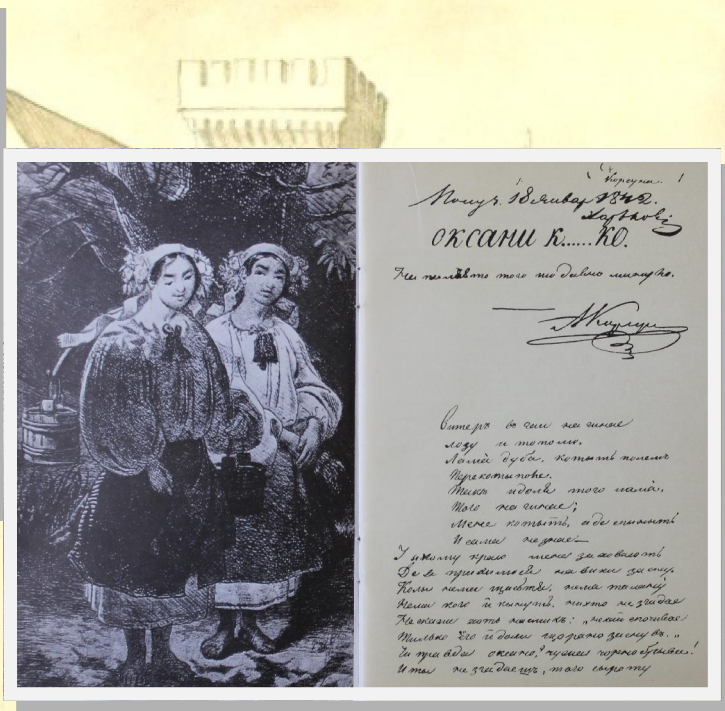 Корсуна.
Получ. 18 Января 1842.
Харьковъ
ОКСАНИ К......КО.
На память того що давно минуло.
АКорсун
Витеръ въ гаи нагинае
лозу и тополю.
Лама дуба. котыть полемъ
Перекотыполе.
Такъ и доля того лама.
Того нагинае;
Мене котыть, а де спыныть
И сама не знае —
У якому краю мене заховають
Де я прихилюся на вики засну.
Колы нема щастья, нема талану
Нема кого й кынуть. нихто не згадае
Не скаже хоть на смихъ: „нехай спочивае
Тилько его й доли що рано заснувъ. „
Чи правда Оксано? чужая чорнобрыва!
И ты не згадаешъ, того сироту